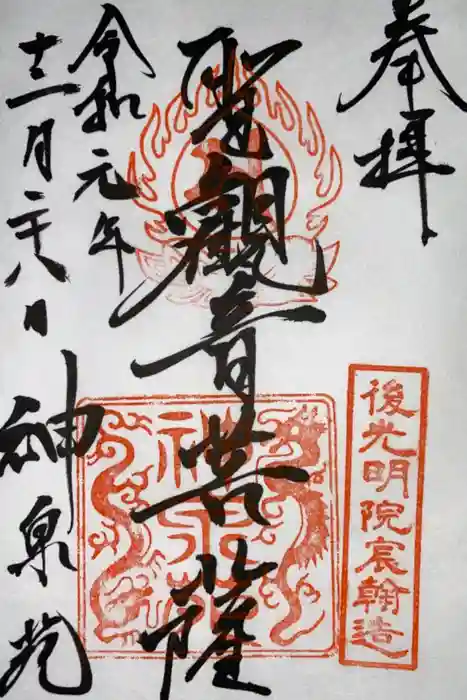 奉拝
後光明院宸翰造
聖観音菩薩
神泉苑
令和元年
十二月二十八日
神泉苑